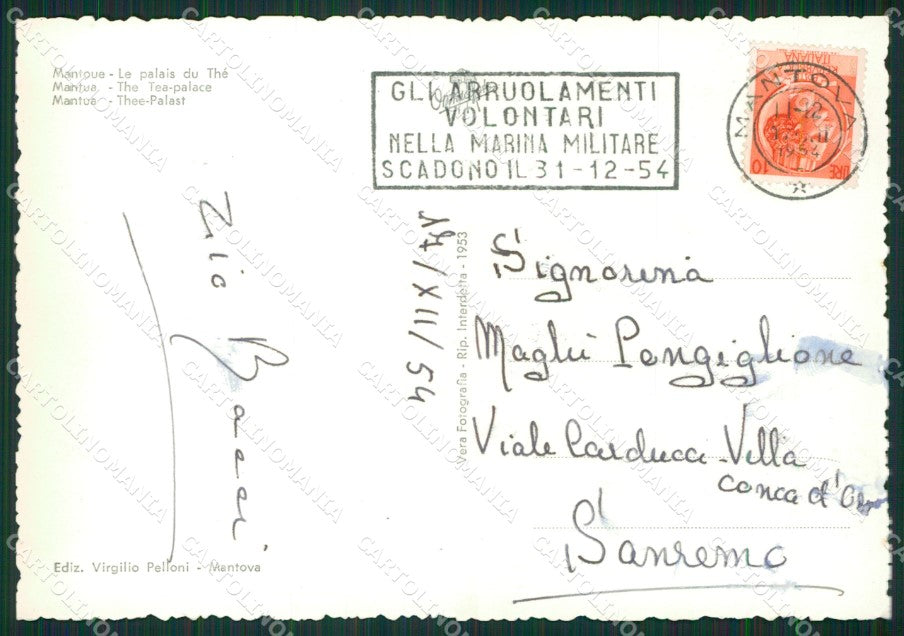 Mantoue - Le palais du Thé
Mantua - The Tea-palace
Mantua - Thee-Palast
GLI ARRUOLAMENTI
VOLONTARI
NELLA MARINA MILITARE
SCADONO IL 31-12-54
MANTOVA
1954
ITALIANA
LIRE 10
Zio
Baci
17/XII/54
Vera Fotografia - Rip. Interdetta - 1953
Signorina
Maglii Pongiglione
Viale Carducci Villa
conca d'Oro
Sanremo
Ediz. Virgilio Pelloni - Mantova
CARTOLINOMANIA